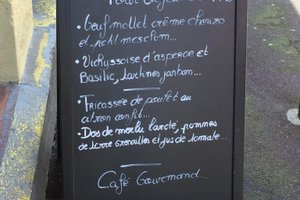 • Oeuf mollet crème chorizo
et petit mesclun...
• Vichyssoise d'asperge et
Basilic, tartines jambon...
• Fricassée de poulet au
citron confit...
• Dos de merlu lardé, pommes
de terre grenailles et jus de tomate...
Café Gourmand...